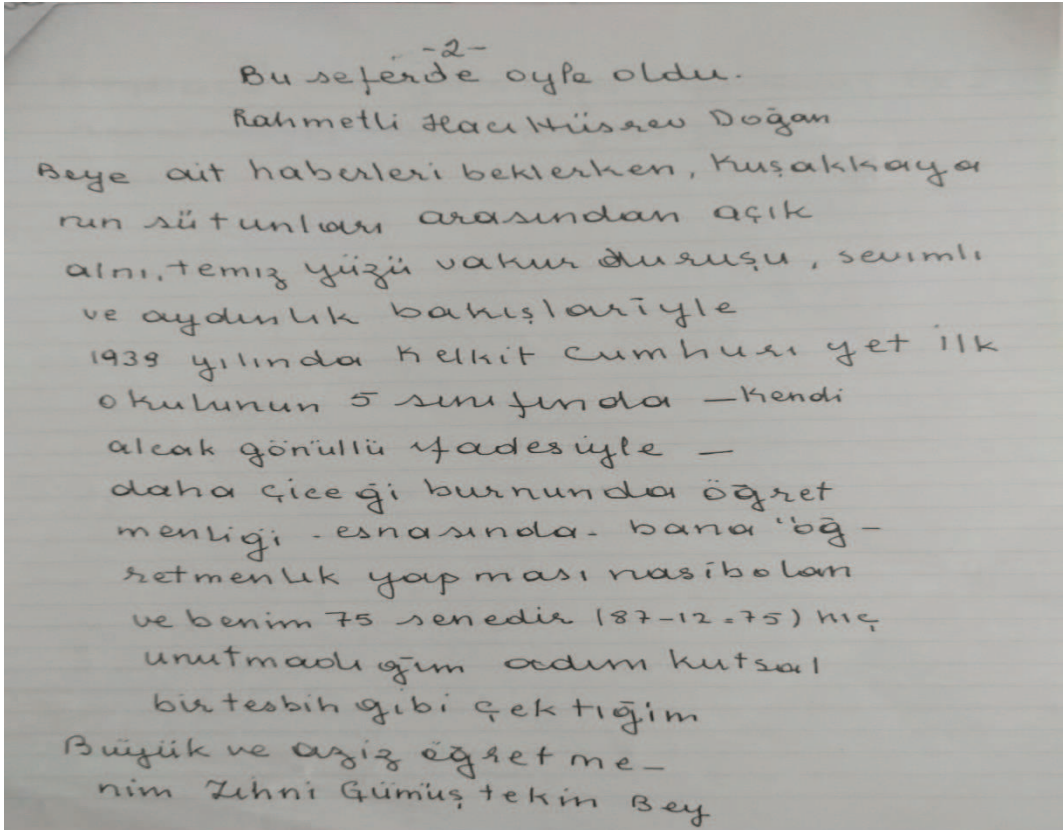 -2-
Bu seferde oyle oldu.
Rahmetli Hacı Hüsrev Doğan
Beye ait haberleri beklerken, Kuşakkaya
nın sütunları arasından açık
alnı, temiz yüzü vakur duruşu, sevimli
ve aydınlık bakışlariyle
1939 yılında Kelkit Cumhuri yet ilk
okulunun 5 sınıfında - Kendi
alcak gönüllü ifadesiyle -
daha çiceği burnunda öğret
menliği - esnasında - bana "öğ-
retmenlik yapması nasibolan
ve benim 75 senedir (87-12=75) hiç
unutmadığım adını kutsal
bir tesbih gibi çektiğim
Büyük ve aziz öğretme-
nim Zihni Gümüştekin Bey